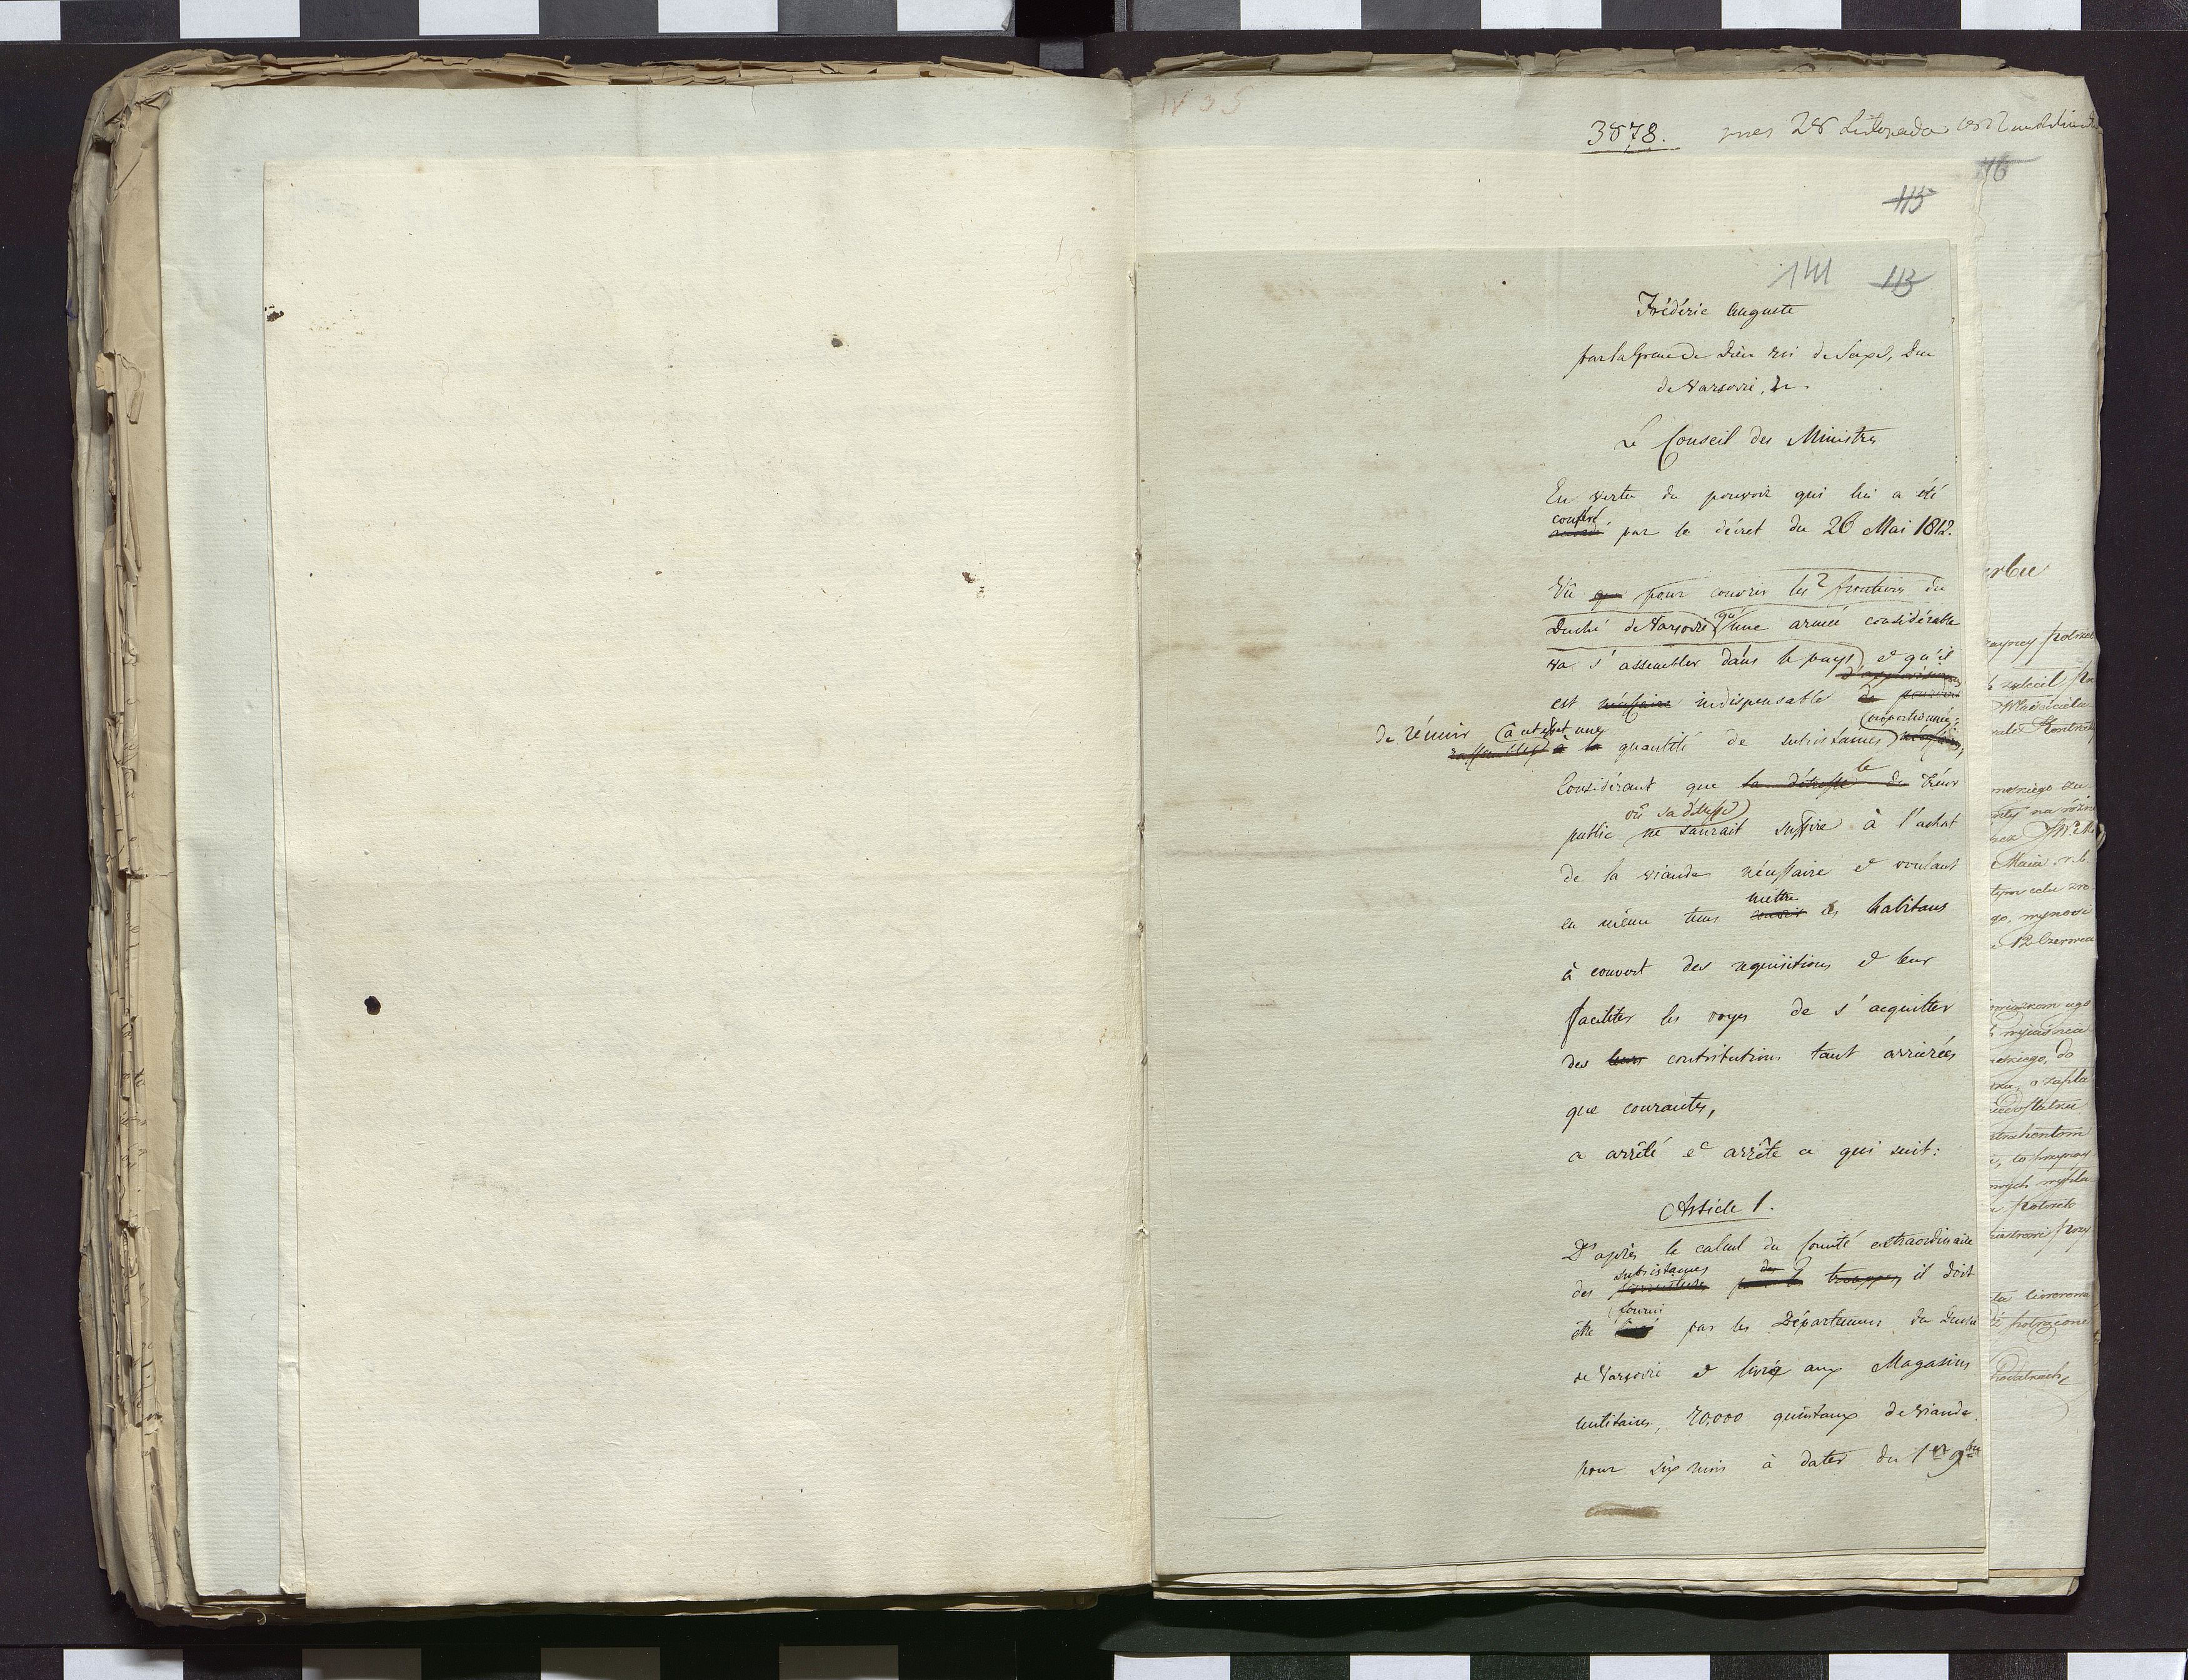 3878.
28 Listopada
116
115
141 113
Frédéric Auguste
par la Grace de Dieu roi de Saxe, Duc
de Varsovie, &c.
Le Conseil des Ministres
En vertu du pouvoir qui lui a été
conféré
accordé par le décret du 26 Mai 1812.
Vû que pour couvrir les frontières du
Duché de Varsovie qu'une armée considérable
va s'assembler dans le pays et qu'il
est nécessaire indispensable de
de réunir à cet effet une proportionnée
rassembler à la quantité de subsistances nécessaire,
Considérant que la détresse du le Trésor
où sa détresse
public ne saurait suffire à l'achat
de la viande nécessaire et voulant
mettre
en même tems couvrir les habitans
à couvert des requisitions et leur
faciliter les voyes de s'acquitter
des leurs contributions tant arriérées
que courantes,
a arrêté et arrête ce qui suit:
Article 1.
D'après le calcul du Comité extraordinaire
subsistances des
des fournitures pour les trouppes, il doit
fourni
être livré par les Départemens du Duché
de Varsovie et livré aux Magasins
militaires, 70,000 quintaux de viande
pour six mois à dater du 1er 9bre
erbu
potrzeb
zalecił
moskiego
na różne
Maia r. b.
tym celu
12 Czerwca
do